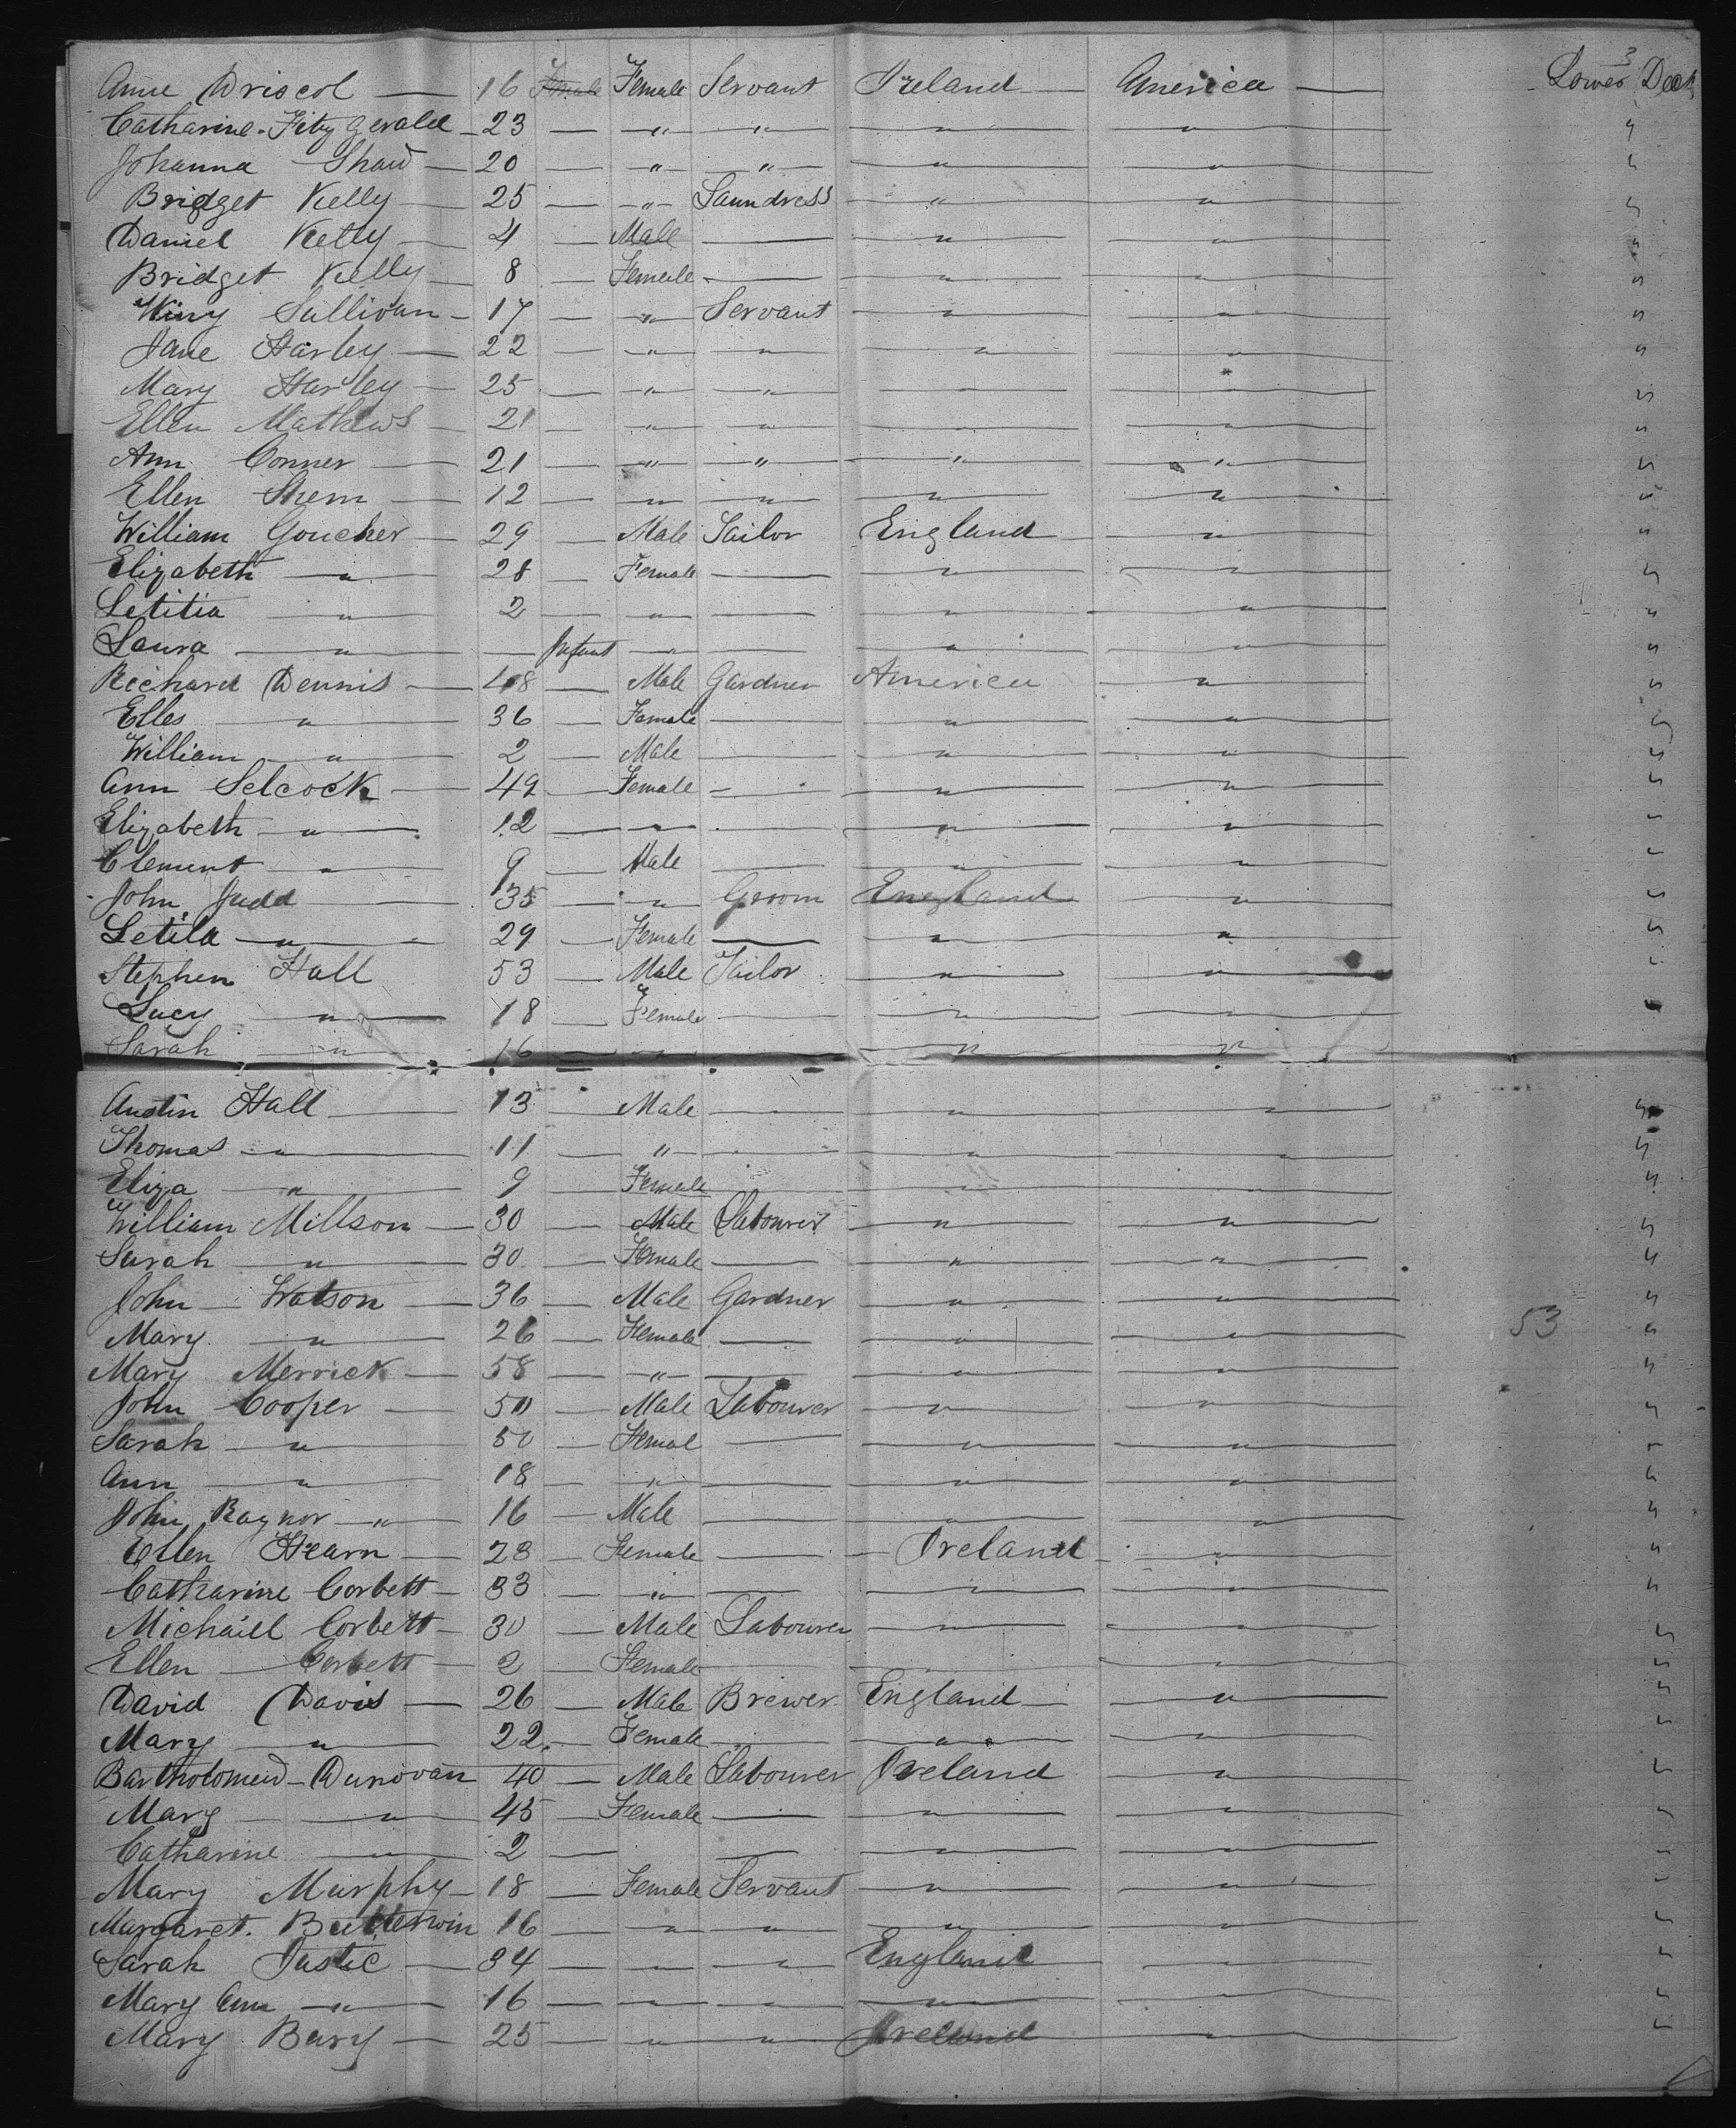 3
Anne Driscol — 16 Female Female Servant Ireland — America — Lower Deck
Catharine Fitzgerald — 23 — " " " " "
Johanna Shaw — 20 — " " " " "
Bridget Kelly — 25 — " Laundress " " "
Daniel Kelly — 4 — Male — " " "
Bridget Kelly 8 — Female — " " "
Winy Sullivan — 17 — " Servant " " "
Jane Harley — 22 — " " " " "
Mary Harley — 25 — " " " " "
Ellen Mathews — 21 — " " " " "
Ann Conner — 21 — " " " " "
Ellen Shem — 12 — " " " " "
William Goucher — 29 — Male Tailor England " "
Elizabeth " 28 — Female — " " "
Letitia " 2 — " — " " "
Laura " — Infant " — " " "
Richard Dennis — 48 — Male Gardner America " "
Elles " 36 — Female — " " "
William " 2 — Male — " " "
Ann Selcock — 49 — Female — " " "
Elizabeth " 12 — " — " " "
Clement " 9 — Male — " " "
John Judd — 35 — " Groom England " "
Letila " 29 — Female — " " "
Stephen Hall 53 — Male Tailor " " "
Lucy " 18 — Female — " " "
Sarah " 16 — " — " "
Austin Hall — 13 — Male — " " "
Thomas " 11 — " — " " "
Eliza " 9 — Female — " " "
William Millson — 30 — Male Labourer " " "
Sarah " 30 — Female — " " "
John — Watson — 36 — Male Gardner " " "
Mary " 26 — Female — " " 53 "
Mary Merrick — 58 — " — " " "
John Cooper — 50 — Male Labourer " " "
Sarah " 50 — Femal — " " "
Ann " 18 — " — " " "
John Raynor " 16 — Male — " " "
Ellen Hearn — 28 — Female — Ireland " "
Catharine Corbett — 33 — " — " " "
Michaiel Corbett — 30 — Male Labourer " " "
Ellen — Corbett — 2 — Female — " " "
David Davis — 26 — Male Brewer England " "
Mary " 22 — Female — " " "
Bartholomew Dunovan 40 — Male Labourer Ireland " "
Mary " 45 — Female — " " "
Catharine " 2 — — " " "
Mary Murphy — 18 — Female Servant " " "
Margaret 16 — " " " " "
Sarah — 34 — " " England " "
Mary Ann " 16 — " " " " "
Mary Bary — 25 — " " Ireland " "